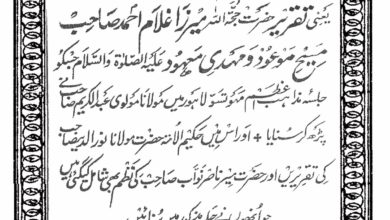 یعنی تقریر حضرت حجۃ اللہ میرزا غلام احمد صاحب
مسیح موعود و مہدی معہود علیہ الصلوٰۃ والسلام جسکو
جلسہ مذاہب عظیم مہوتسو لاہور میں مولانا مولوی عبدالکریم صاحب نے
پڑھ کر سنایا + اور اس میں حکیم الامۃ حضرت مولانا نور الدین صاحب
کی تقریریں اور حضرت میر ناصر نواب صاحب کی نظم بھی شامل کیگئی ہیں
جو انھوں نے جلسہ مذکور میں سنائیں